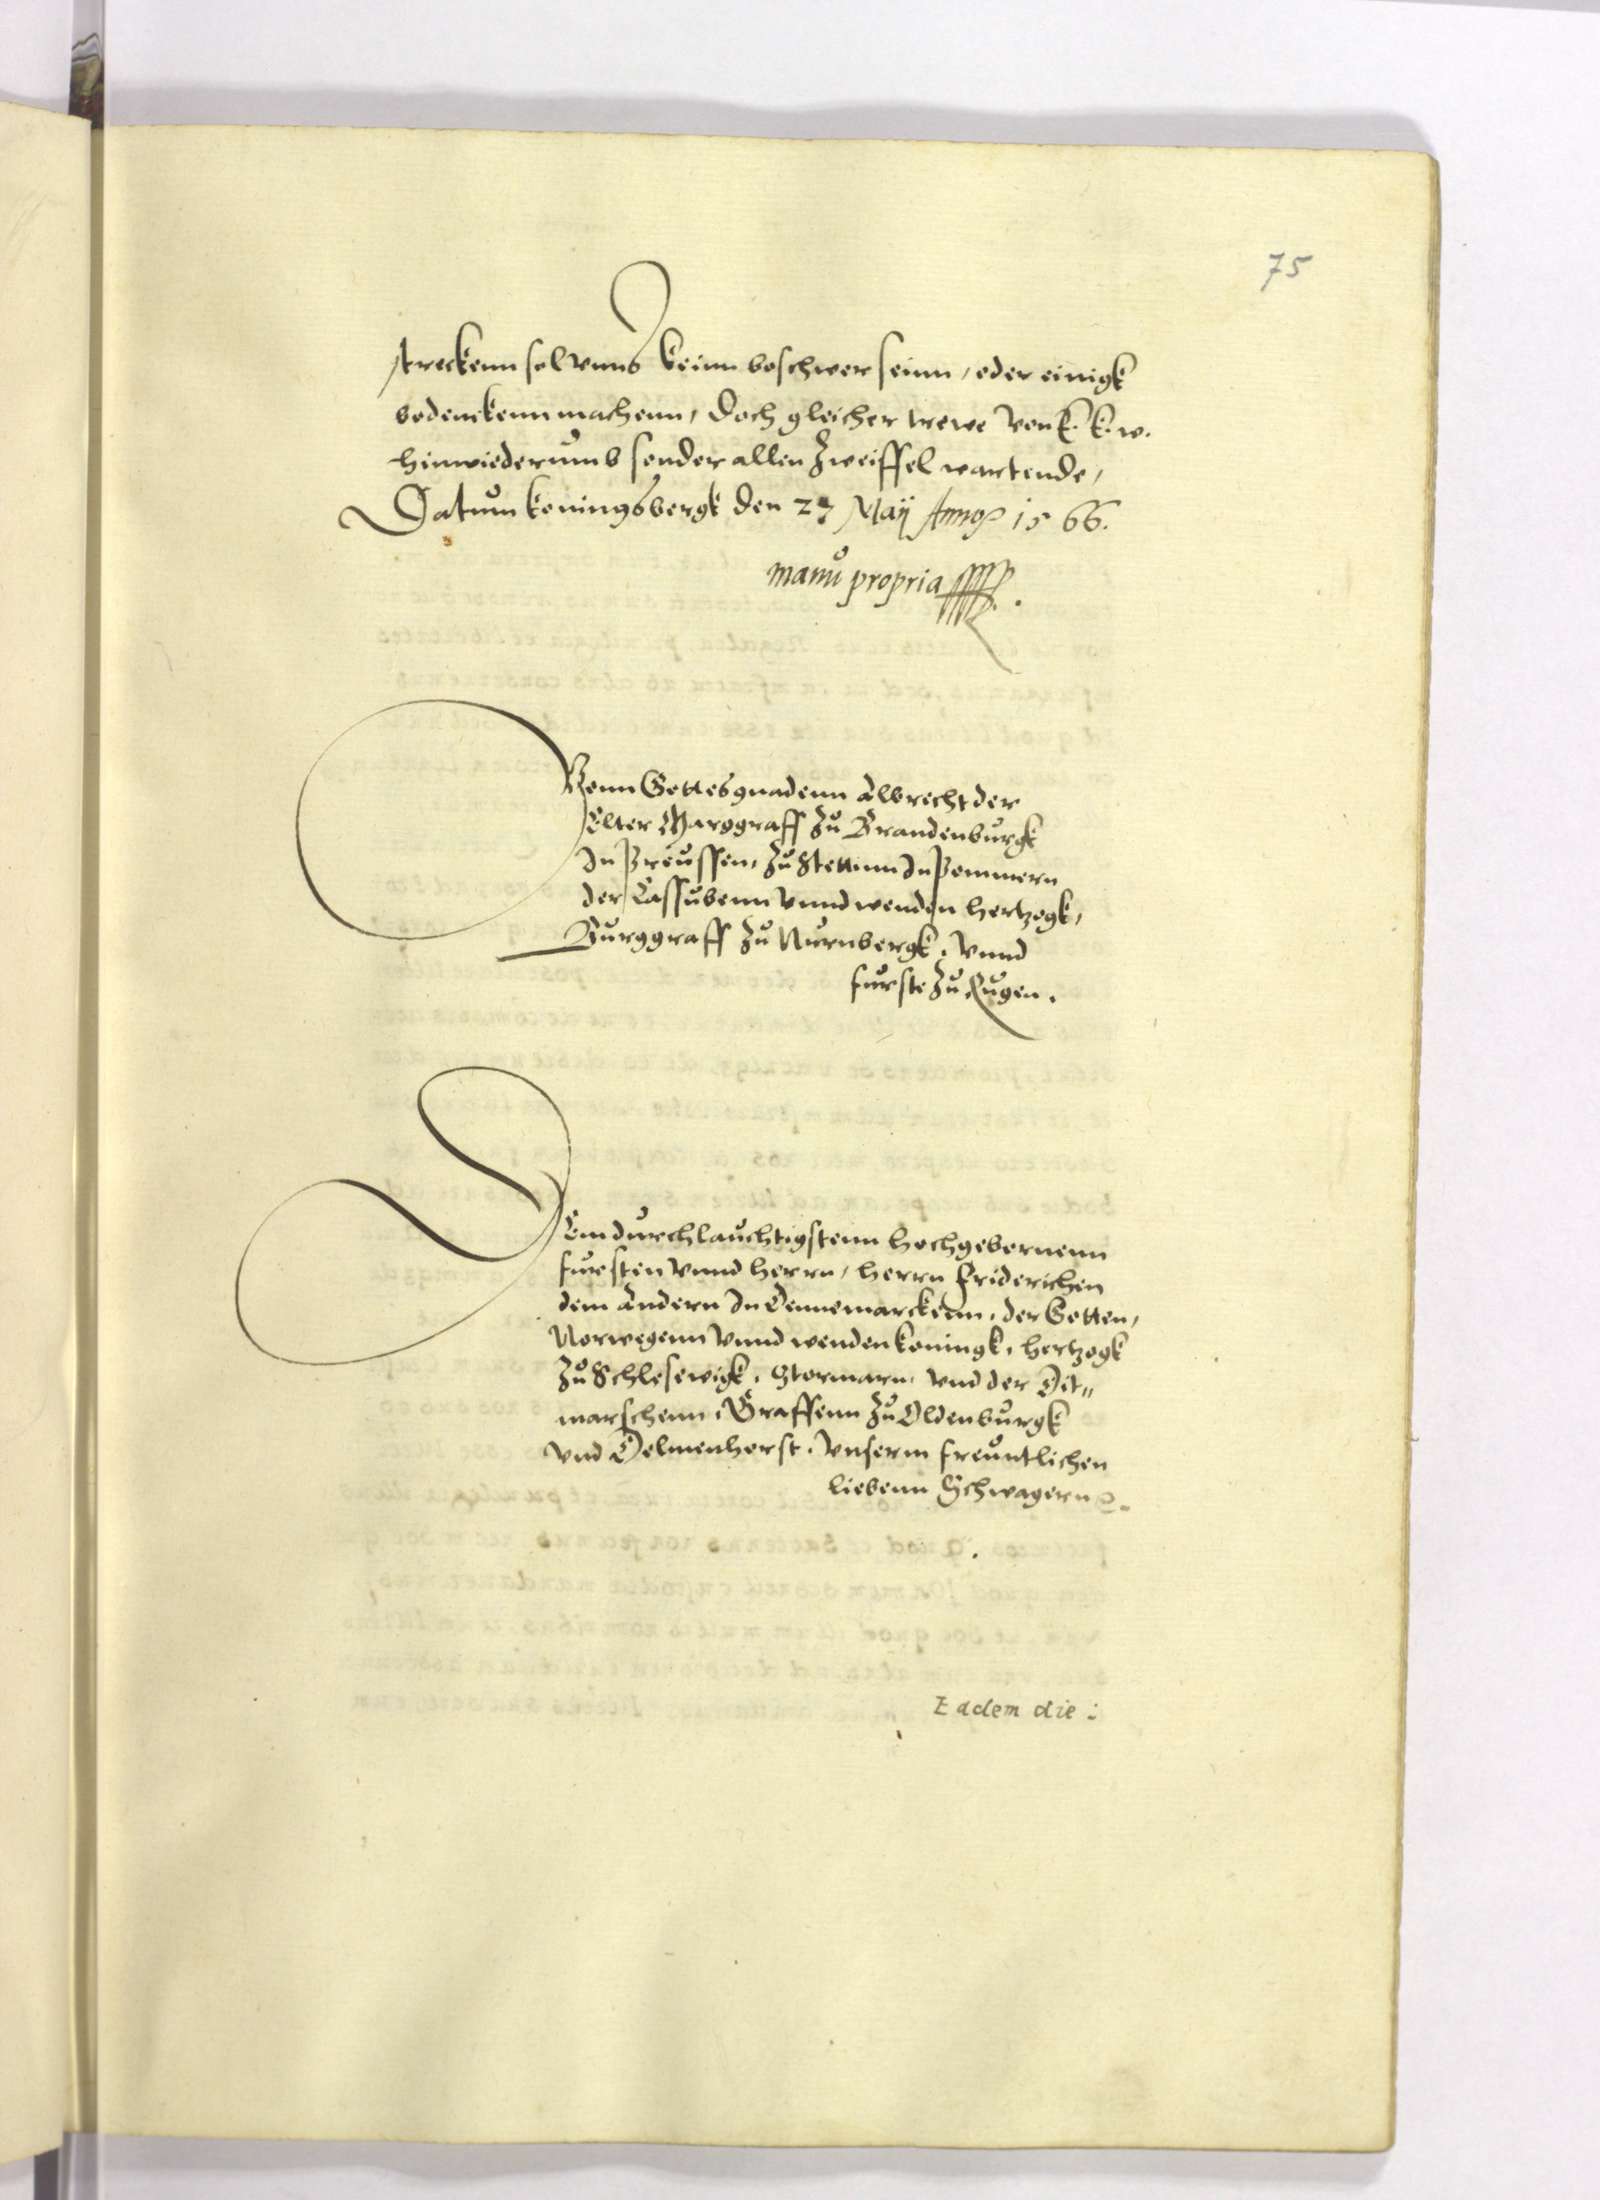 75
streckenn sol vnns keinn beschwer seinn, oder einigk
bedenckenn machenn, Doch gleicher trewe von E. K. W.
hinwiederumb sonder allen Zweiffel wartende,
Datum Konningsbergk den 27 Maij Anno 1566.
manu propria
Vonn Gottes gnadenn Albrecht der
Elter Marggraff Zu Brandenburgk
In Preussen, Zu Stettinn In Pommern
der Cassubenn vnnd wenden hertzogk,
Burggraff Zu Nurnbergk, vnnd
furste Zu Rugen.
DEm durchlauchtigstenn hochgebornenn
fursten vnnd herrn, herrn Friderichen
dem Andern In Dennemarckenn, der Gotten,
Norwegenn vnnd wenden koningk, hertzogk
Zu Schleswigk, Stormarn, vnd der Dit„
marschenn, Graffenn Zu Oldenburgk
vnd Delmenhorst, vnserm freuntlichen
liebenn Schwagern
Eadem die: